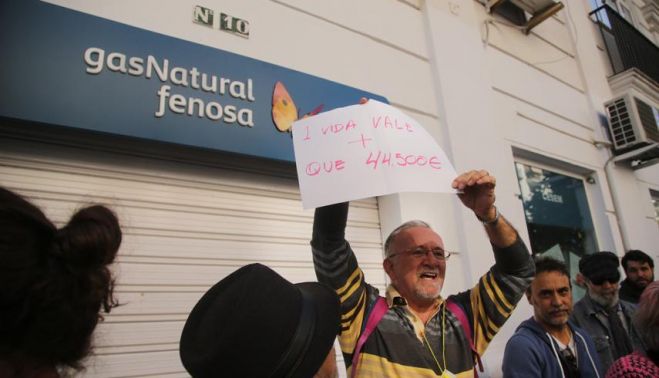 Nº 10
gasNatural
fenosa
1 VIDA VALE
+
QUE 44.500€